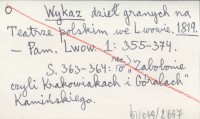 O Wykaz dzieł granych na
Teatrze polskim we Lwowie 1819.
— Pam. Lwow. 1: 355-374.
S. 363-364: rec. o "Zabobonie
czyli Krakowiakach i Góralach"
Kamińskiego.